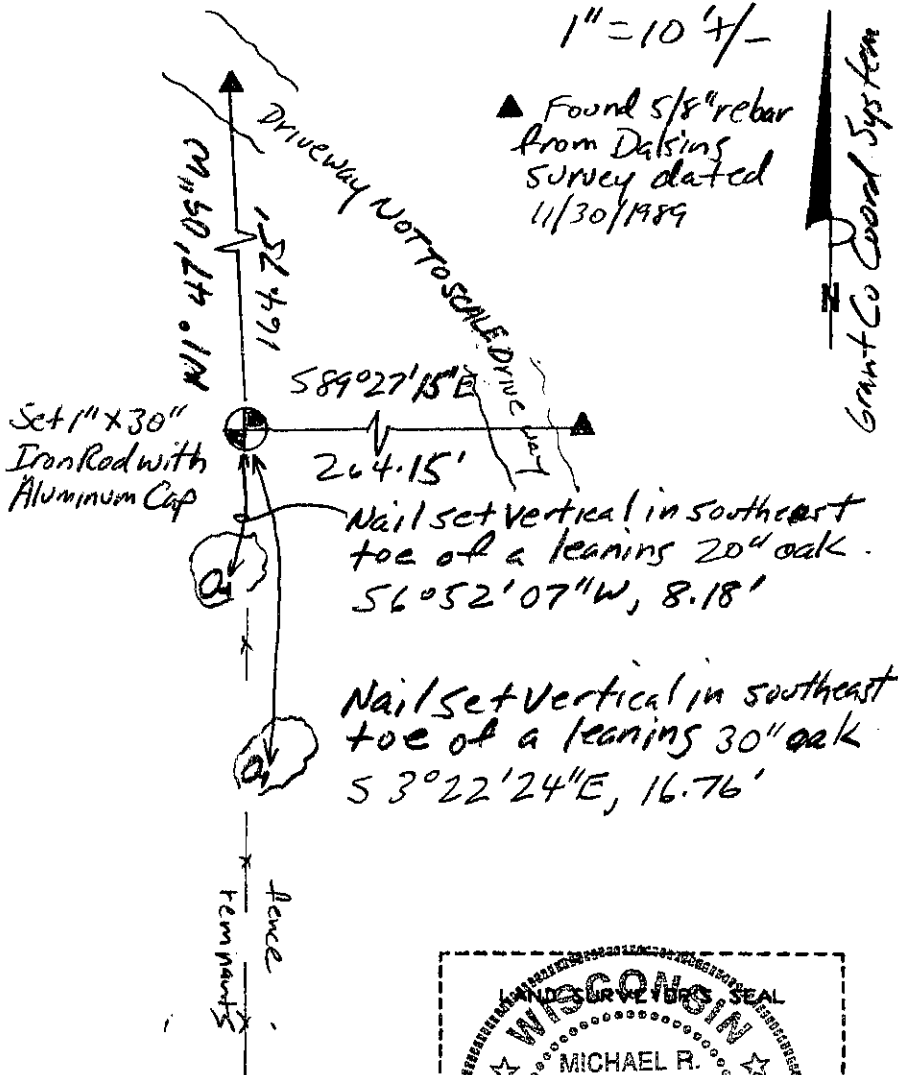 1"=10'+/-
▲ Found 5/8" rebar
from Dalsing
survey dated
11/30/1989
Grant Co Coord System
N
Driveway NOT TO SCALE Drive way
N1°47'09"W
164.75'
S89°27'15"E
264.15'
Set 1"X30"
Iron Rod with
Aluminum Cap
Nail set vertical in southeast
toe of a leaning 20" oak.
S6°52'07"W, 8.18'
Nail set vertical in southeast
toe of a leaning 30" oak
S 3°22'24"E, 16.76'
fence
remnants
LAND SURVEYOR'S SEAL
WISCONSIN
MICHAEL R.